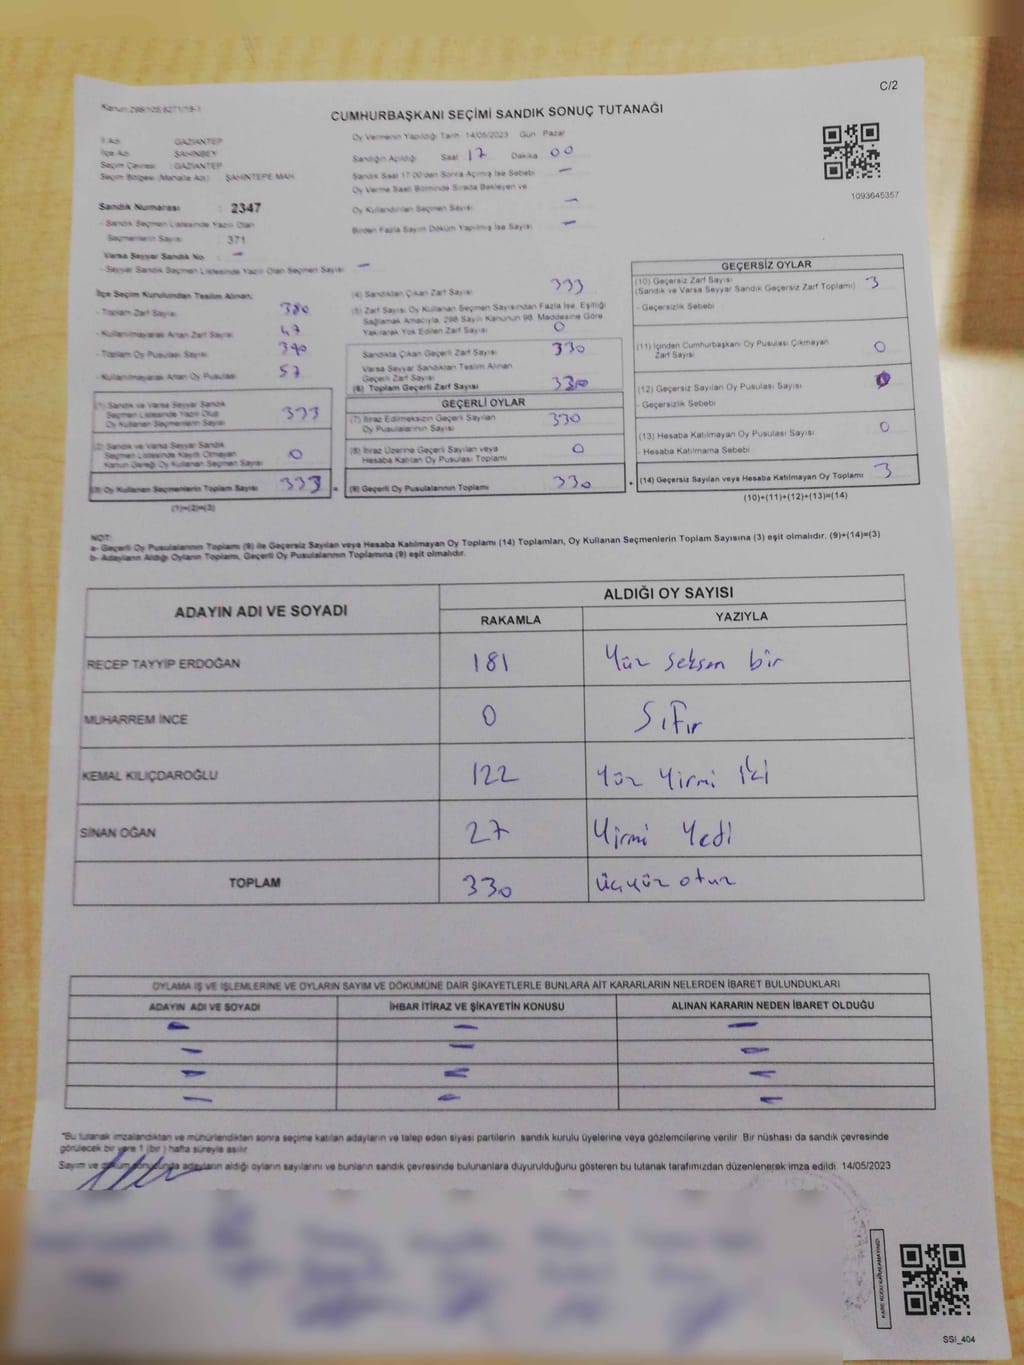 C/2
CUMHURBAŞKANI SEÇİMİ SANDIK SONUÇ TUTANAĞI
İl Adı : GAZİANTEP
İlçe Adı : ŞAHİNBEY
Seçim Çevresi : GAZİANTEP
Seçim Bölgesi (Mahalle Adı) : ŞAHİNTEPE MAH.
Sandık Numarası : 2347
- Sandık Seçmen Listesinde Yazılı Olan
Seçmenlerin Sayısı : 371
Varsa Seyyar Sandık No : –
- Seyyar Sandık Seçmen Listesinde Yazılı Olan Seçmen Sayısı : –
Oy Vermenin Yapıldığı Tarih 14/05/2023 Gün Pazar
Sandığın Açıldığı Saat 17 Dakika 00
Sandık Saat 17:00'den Sonra Açılmış İse Sebebi –
Oy Verme Saati Bitiminde Sırada Bekleyen ve
Oy Kullandırılan Seçmen Sayısı –
Birden Fazla Sayım Döküm Yapılmış İse Sayısı –
1093645357
İlçe Seçim Kurulundan Teslim Alınan;
- Toplam Zarf Sayısı 380
- Kullanılmayarak Artan Zarf Sayısı 47
- Toplam Oy Pusulası Sayısı 390
- Kullanılmayarak Artan Oy Pusulası 57
(1) Sandık ve Varsa Seyyar Sandık
Seçmen Listesinde Yazılı Olup
Oy Kullanan Seçmenlerin Sayısı 333
(2) Sandık ve Varsa Seyyar Sandık
Seçmen Listesinde Kayıtlı Olmayan
Kanun Gereği Oy Kullanan Seçmen Sayısı 0
(3) Oy Kullanan Seçmenlerin Toplam Sayısı 333
(1)+(2)=(3)
(4) Sandıktan Çıkan Zarf Sayısı 333
(5) Zarf Sayısı Oy Kullanan Seçmen Sayısından Fazla İse, Eşitliği
Sağlamak Amacıyla, 298 Sayılı Kanunun 98. Maddesine Göre
Yakılarak Yok Edilen Zarf Sayısı 0
Sandıkta Çıkan Geçerli Zarf Sayısı 330
Varsa Seyyar Sandıktan Teslim Alınan
Geçerli Zarf Sayısı
(6) Toplam Geçerli Zarf Sayısı 330
GEÇERLİ OYLAR
(7) İtiraz Edilmeksizin Geçerli Sayılan
Oy Pusulalarının Sayısı 330
(8) İtiraz Üzerine Geçerli Sayılan veya
Hesaba Katılan Oy Pusulası Toplamı 0
(9) Geçerli Oy Pusulalarının Toplamı 330
GEÇERSİZ OYLAR
(10) Geçersiz Zarf Sayısı 3
(Sandık ve Varsa Seyyar Sandık Geçersiz Zarf Toplamı)
- Geçersizlik Sebebi
(11) İçinden Cumhurbaşkanı Oy Pusulası Çıkmayan
Zarf Sayısı 0
(12) Geçersiz Sayılan Oy Pusulası Sayısı 0
- Geçersizlik Sebebi
(13) Hesaba Katılmayan Oy Pusulası Sayısı 0
- Hesaba Katılmama Sebebi
(14) Geçersiz Sayılan veya Hesaba Katılmayan Oy Toplamı 3
(10)+(11)+(12)+(13)=(14)
NOT:
a- Geçerli Oy Pusulalarının Toplamı (9) ile Geçersiz Sayılan veya Hesaba Katılmayan Oy Toplamı (14) Toplamları, Oy Kullanan Seçmenlerin Toplam Sayısına (3) eşit olmalıdır. (9)+(14)=(3)
b- Adayların Aldığı Oyların Toplamı, Geçerli Oy Pusulalarının Toplamına (9) eşit olmalıdır.
ADAYIN ADI VE SOYADI ALDIĞI OY SAYISI
RAKAMLA YAZIYLA
RECEP TAYYİP ERDOĞAN 181 Yüz seksen bir
MUHARREM İNCE 0 Sıfır
KEMAL KILIÇDAROĞLU 122 Yüz Yirmi iki
SİNAN OĞAN 27 Yirmi Yedi
TOPLAM 330 Üçyüz otuz
OYLAMA İŞ VE İŞLEMLERİNE VE OYLARIN SAYIM VE DÖKÜMÜNE DAİR ŞİKAYETLERLE BUNLARA AİT KARARLARIN NELERDEN İBARET BULUNDUKLARI
ADAYIN ADI VE SOYADI İHBAR İTİRAZ VE ŞİKAYETİN KONUSU ALINAN KARARIN NEDEN İBARET OLDUĞU
– – –
– – –
– – –
– – –
"Bu tutanak imzalandıktan ve mühürlendikten sonra seçime katılan adayların ve talep eden siyasi partilerin sandık kurulu üyelerine veya gözlemcilerine verilir. Bir nüshası da sandık çevresinde
görülecek bir yere 1 (bir) hafta süreyle asılır.
Sayım ve döküm sonucunda adayların aldığı oyların sayılarını ve bunların sandık çevresinde bulunanlara duyurulduğunu gösteren bu tutanak tarafımızdan düzenlenerek imza edildi. 14/05/2023
KARE KODU KARALAMAYINIZ!
SSI_404